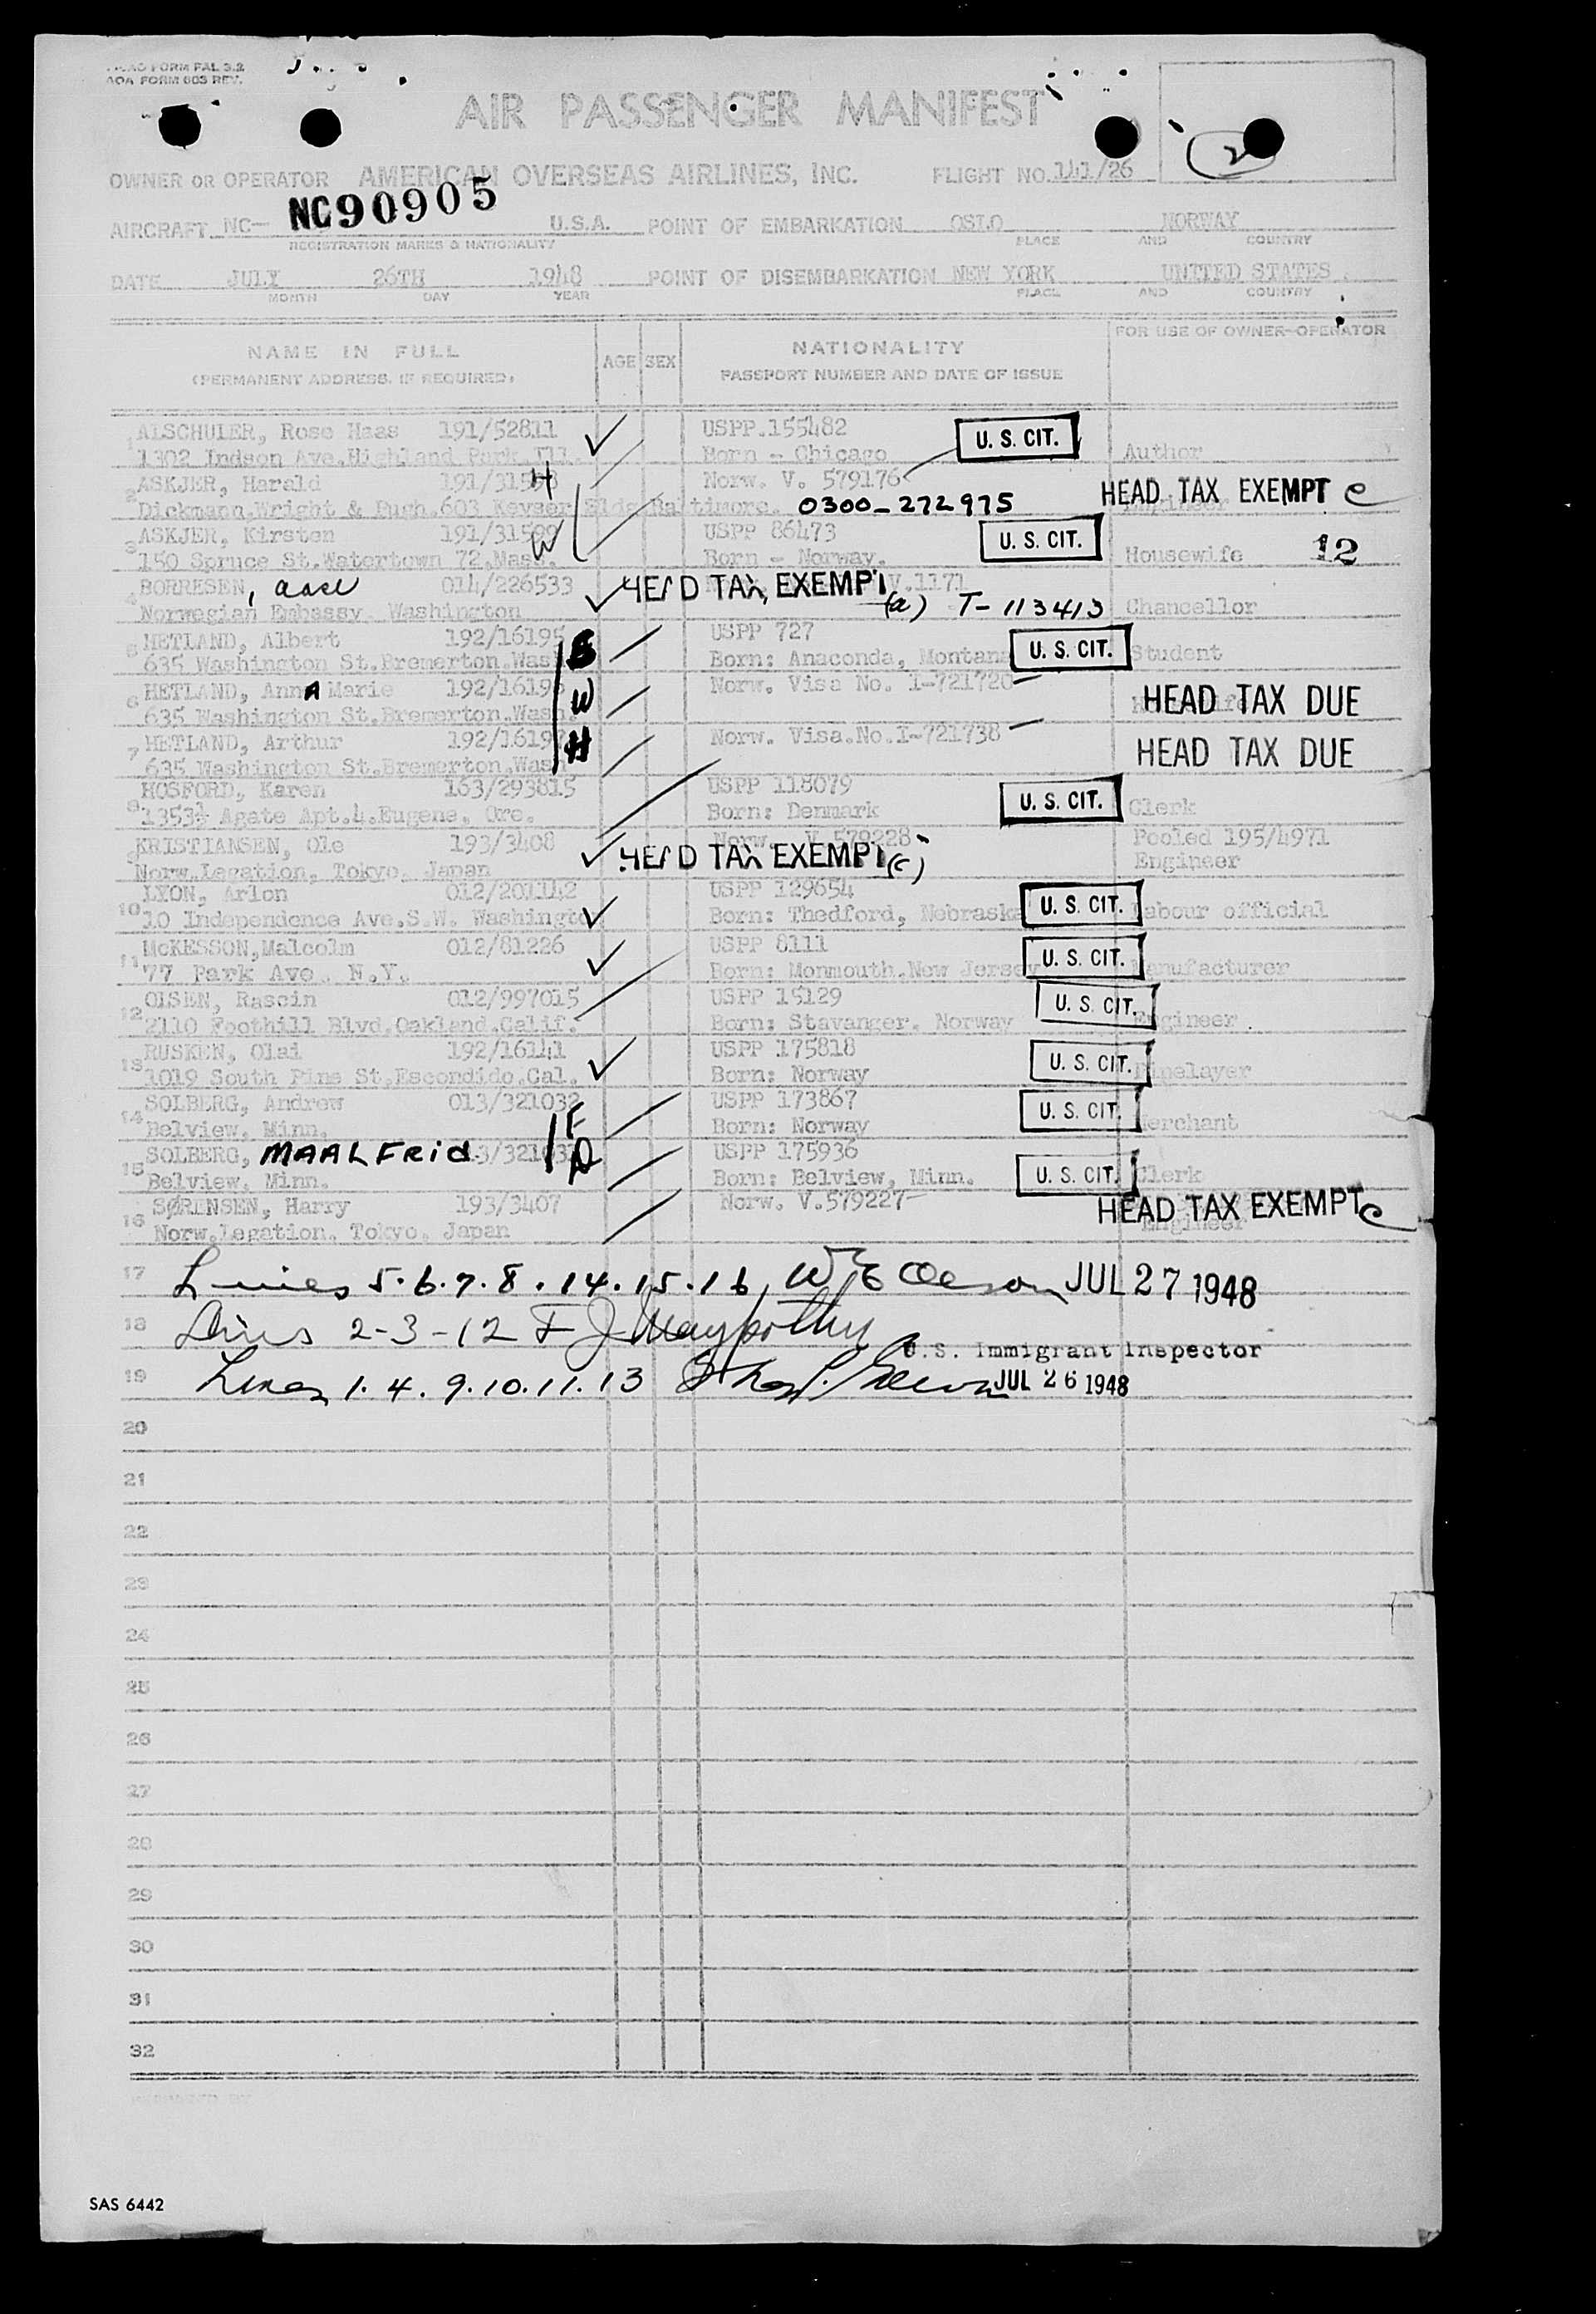 ICAO FORM FAL 3.2
AOA FORM 603 REV.
AIR PASSENGER MANIFEST
2
OWNER OR OPERATOR AMERICAN OVERSEAS AIRLINES, INC. FLIGHT NO. 141/26
AIRCRAFT NC- NC90905 U.S.A. POINT OF EMBARKATION OSLO NORWAY
REGISTRATION MARKS & NATIONALITY PLACE AND COUNTRY
DATE JULY 26TH 1948 POINT OF DISEMBARKATION NEW YORK UNITED STATES
MONTH DAY YEAR PLACE AND COUNTRY
NAME IN FULL AGE SEX NATIONALITY FOR USE OF OWNER-OPERATOR
(PERMANENT ADDRESS, IF REQUIRED) PASSPORT NUMBER AND DATE OF ISSUE
1 ALSCHULER, Rose Haas 191/52811 USPP.155482 U. S. CIT.
1302 Indson Ave.Highland Park.Ill. Born - Chicago Author
2 ASKJER, Harald 191/31598 H Norw. V. 579176 HEAD TAX EXEMPT c
Dickmann,Wright & Pugh.603 Keyser Bldg.Baltimore. 0300-272975 Engineer
3 ASKJER, Kirsten 191/31599 W USPP 86473 U. S. CIT.
150 Spruce St.Watertown 72,Mass. Born - Norway. Housewife 12
4 BORRESEN, Aase 014/226533 HEAD TAX EXEMPT V.1171
Norwegian Embassy. Washington (a) T-113413 Chancellor
5 HETLAND, Albert 192/16195 S USPP 727 U. S. CIT.
635 Washington St.Bremerton.Wash Born: Anaconda, Montana Student
6 HETLAND, AnnA Marie 192/16196 W Norw. Visa No. I-721720 HEAD TAX DUE
635 Washington St.Bremerton.Wash.
7 HETLAND, Arthur 192/16197 H Norw. Visa.No.I-721738 HEAD TAX DUE
635 Washington St.Bremerton,Wash
8 HOSFORD, Karen 163/293815 USPP 118079 U. S. CIT.
1353½ Agate Apt.4.Eugene, Ore. Born: Denmark Clerk
9 KRISTIANSEN, Ole 193/3408 Norw. V. 579228 Pooled 195/4971
Norw.Legation, Tokyo, Japan HEAD TAX EXEMPT (c) Engineer
10 LYON, Arlon 012/201142 USPP 129654 U. S. CIT.
10 Independence Ave.S.W. Washington Born: Thedford, Nebraska Labour official
11 McKESSON,Malcolm 012/81226 USPP 8111 U. S. CIT.
77 Park Ave. N.Y. Born: Monmouth,New Jersey Manufacturer
12 OLSEN, Rascin 012/997015 USPP 15129 U. S. CIT.
2110 Foothill Blvd.Oakland.Calif. Born: Stavanger, Norway Engineer
13 RUSKEN, Olai 192/16141 USPP 175818 U. S. CIT.
1019 South Pine St.Escondido,Cal. Born: Norway Pipelayer
14 SOLBERG, Andrew 013/321032 F USPP 173867 U. S. CIT.
Belview, Minn. Born: Norway Merchant
15 SOLBERG, MAALFRID 13/321031 D USPP 175936 U. S. CIT.
Belview, Minn. Born: Belview, Minn. Clerk
16 SØRENSEN, Harry 193/3407 Norw. V.579227 HEAD TAX EXEMPT c
Norw.Legation. Tokyo. Japan Engineer
17 Lines 5.6.7.8.14.15.16, W E Oleson JUL 27 1948
18 Lines 2-3-12 F J
U.S. Immigrant Inspector
19 Lines 1.4.9.10.11.13 JUL 26 1948
20
21
22
23
24
25
26
27
28
29
30
31
32
SAS 6442